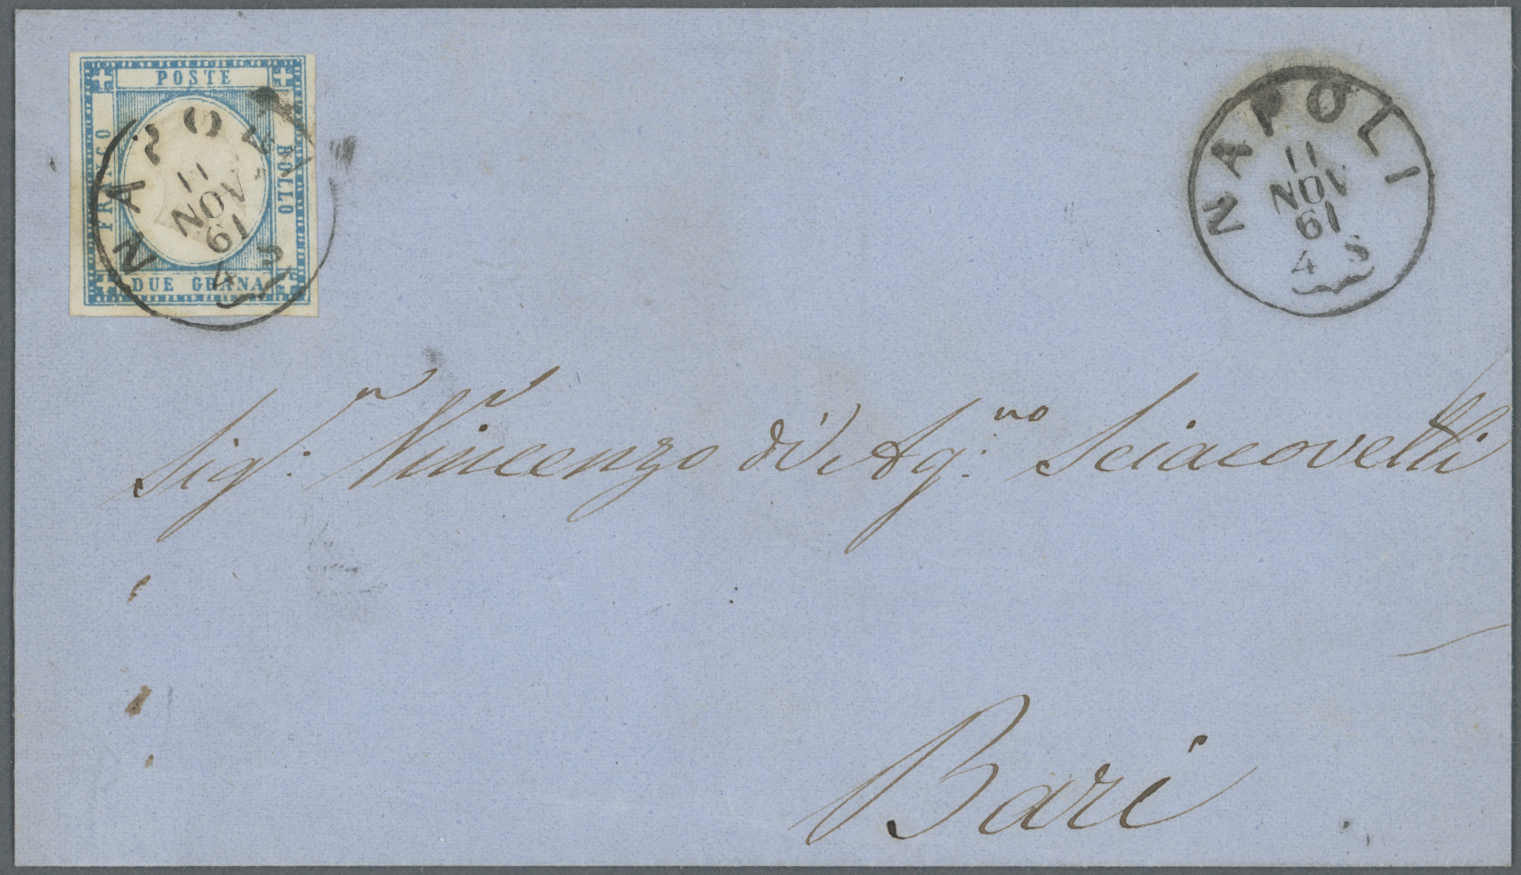 POSTE
FRANCO
BOLLO
DUE GRANA
NAPOLI
11
NOV
61
4 S
NAPOLI
11
NOV
61
4 S
Sig.r Vincenzo di Ag:no Sciacovelli
Bari